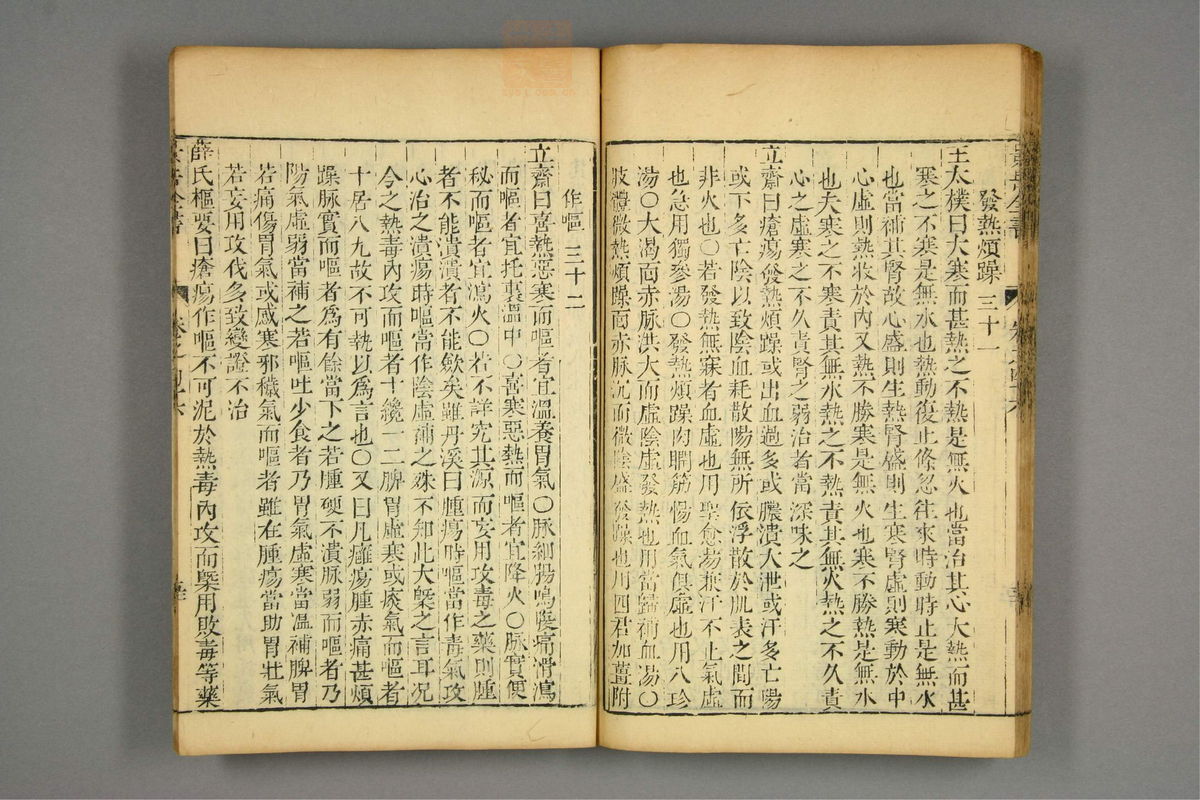 景岳全書 卷之四十六
發熱煩躁 三十一
王太樸曰大寒而甚熱之不熱是無火也當治其心大熱而甚
寒之不寒是無水也熱動復止倏忽往來時動時止是無水
也當補其腎故心盛則生熱腎盛則生寒腎虛則寒動於中
心虛則熱收於內又熱不勝寒是無火也寒不勝熱是無水
也夫寒之不寒責其無水熱之不熱責其無火熱之不久責
心之虛寒之不久責腎之弱治者當深味之
立齋曰瘡瘍發熱煩躁或出血過多或膿潰大泄或汗多亡陽
或下多亡陰以致陰血耗散陽無所依浮散於肌表之間而
非火也○若發熱無寐者血虛也用聖愈湯兼汗不止氣虛
也急用獨參湯○發熱煩躁肉瞤筋惕血氣俱虛也用八珍
湯○大渴面赤脉洪大而虛陰虛發熱也用當歸補血湯○
肢體微熱煩躁面赤脉沉而微陰盛發躁也用四君加薑附
作嘔 三十二
立齋曰喜熱惡寒而嘔者宜溫養胃氣○脉細腸鳴腹痛滑瀉
而嘔者宜托裏溫中○喜寒惡熱而嘔者宜降火○脉實便
秘而嘔者宜瀉火○若不詳究其源而妄用攻毒之藥則腫
者不能潰潰者不能斂矣雖丹溪曰腫瘍時嘔當作毒氣攻
心治之潰瘍時嘔當作陰虛補之殊不知此大槩之言耳况
今之熱毒內攻而嘔者十纔一二脾胃虛寒或痰氣而嘔者
十居八九故不可執以爲言也○又曰凡癰瘍腫赤痛甚煩
躁脉實而嘔者爲有餘當下之若腫硬不潰脉弱而嘔者乃
陽氣虛弱當補之若嘔吐少食者乃胃氣虛寒當溫補脾胃
若痛傷胃氣或感寒邪穢氣而嘔者雖在腫瘍當助胃壯氣
若妄用攻伐多致變證不治
薛氏樞要曰瘡瘍作嘔不可泥於熱毒內攻而槩用敗毒等藥
景岳全書 卷之四十六